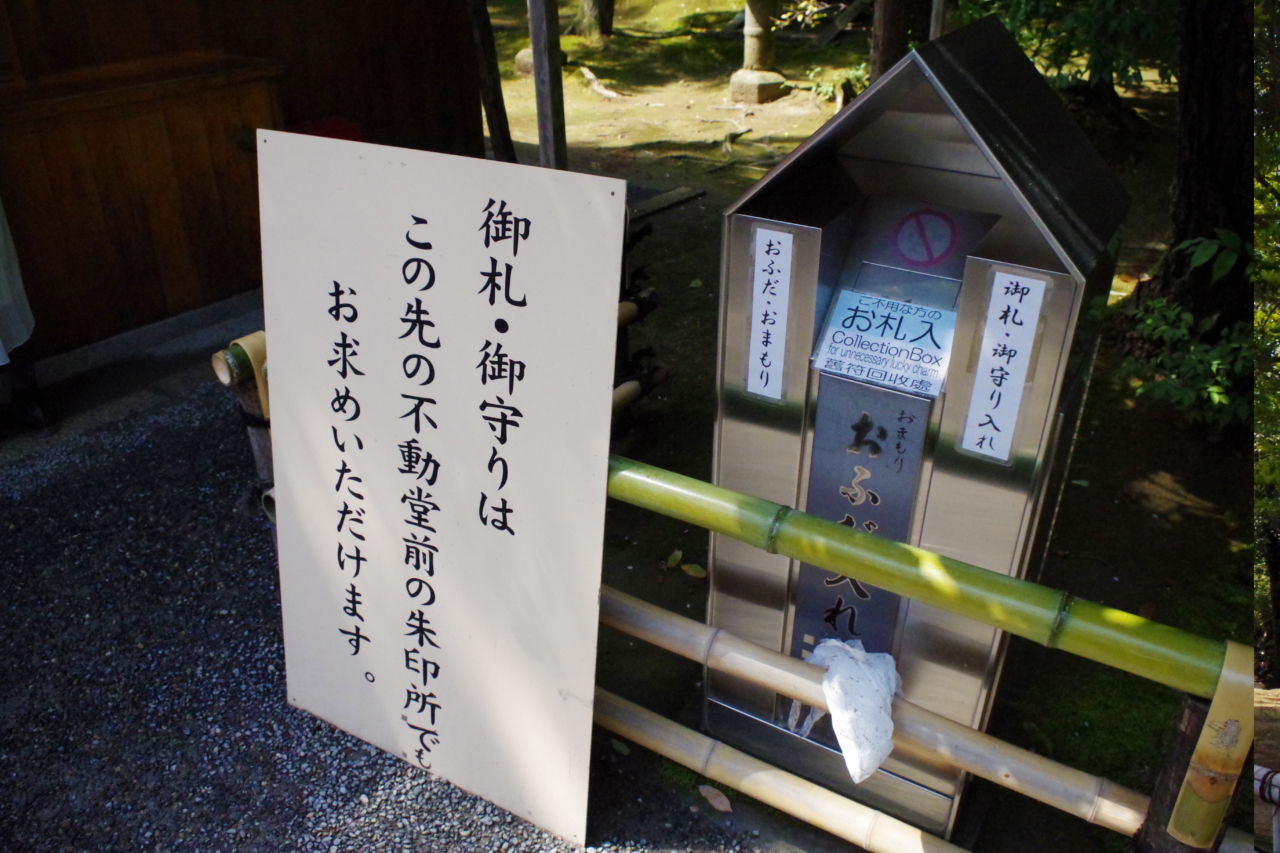 御札・御守りは
この先の不動堂前の朱印所でも
お求めいただけます。
おふだ・おまもり
ご不用な方の
お札入
CollectionBox
for unnecessary lucky charm
舊符回收處
御札・御守り入れ
おまもり
おふだ入れ